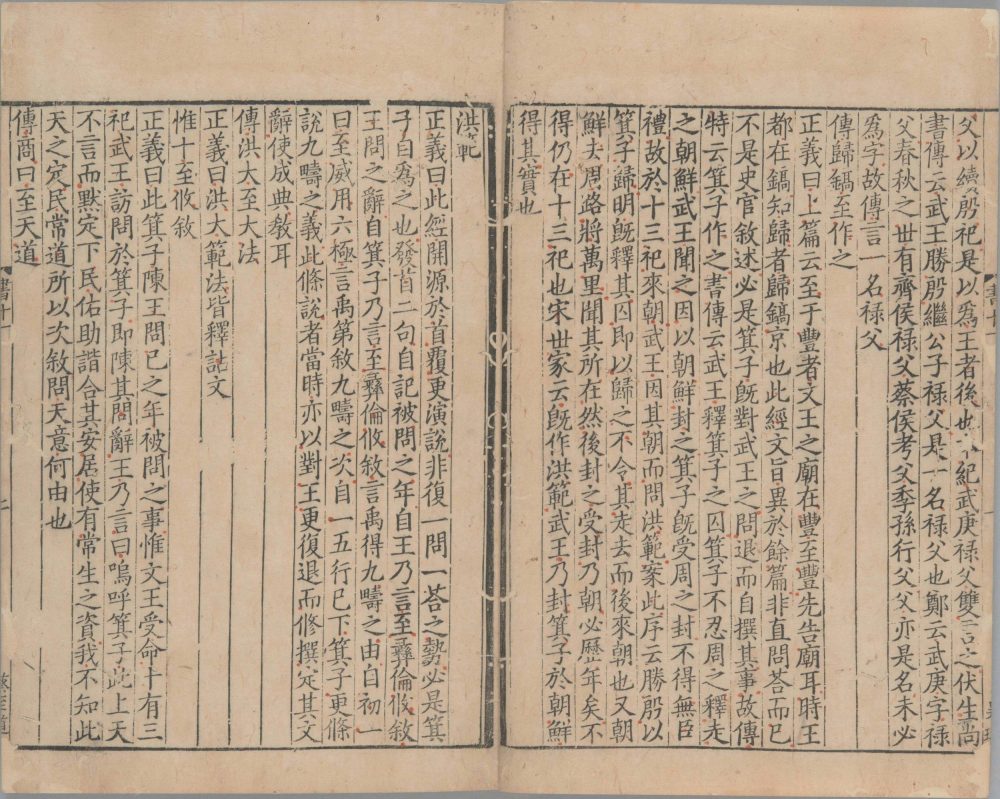 父以續殷祀是以爲王者後也本紀武庚禄父雙言之伏生尚
書傳云武王勝殷繼公子禄父是一名禄父也鄭云武庚字禄
父春秋之世有齊侯禄父蔡侯考父季孫行父父亦是名未必
爲字故傳言一名禄父
傳歸鎬至作之
正義曰上篇云至于豐者文王之廟在豐至豐先告廟耳時王
都在鎬知歸者歸鎬京也此經文旨異於餘篇非直問荅而已
不是史官敘述必是箕子旣對武王之問退而自撰其事故傳
特云箕子作之書傳云武王釋箕子之囚箕子不忍周之釋走
之朝鮮武王聞之因以朝鮮封之箕子旣受周之封不得無臣
禮故於十三祀來朝武王因其朝而問洪範案此序云勝殷以
箕子歸明旣釋其囚即以歸之不令其走去而後來朝也又朝
鮮去周路將萬里聞其所在然後封之受封乃朝必歷年矣不
得仍在十三祀也宋世家云旣作洪範武王乃封箕子於朝鮮
得其實也
洪範
正義曰此經開源於首覆更演說非復一問一荅之勢必是箕
子自爲之也發首二句自記被問之年自王乃言至彝倫攸敘
王問之辭自箕子乃言至彝倫攸敘言禹得九疇之由自初一
曰至威用六極言禹第敘九疇之次自一五行已下箕子更條
說九疇之義此條說者當時亦以對王更復退而修撰定其文
辭使成典敎耳
傳洪大至大法
正義曰洪大範法皆釋詁文
惟十至攸敘
正義曰此箕子陳王問已之年被問之事惟文王受命十有三
祀武王訪問於箕子即陳其問辭王乃言曰嗚呼箕子此上天
不言而默定下民佑助諧合其安居使有常生之資我不知此
天之定民常道所以次敘問天意何由也
傳商曰至天道
書十一